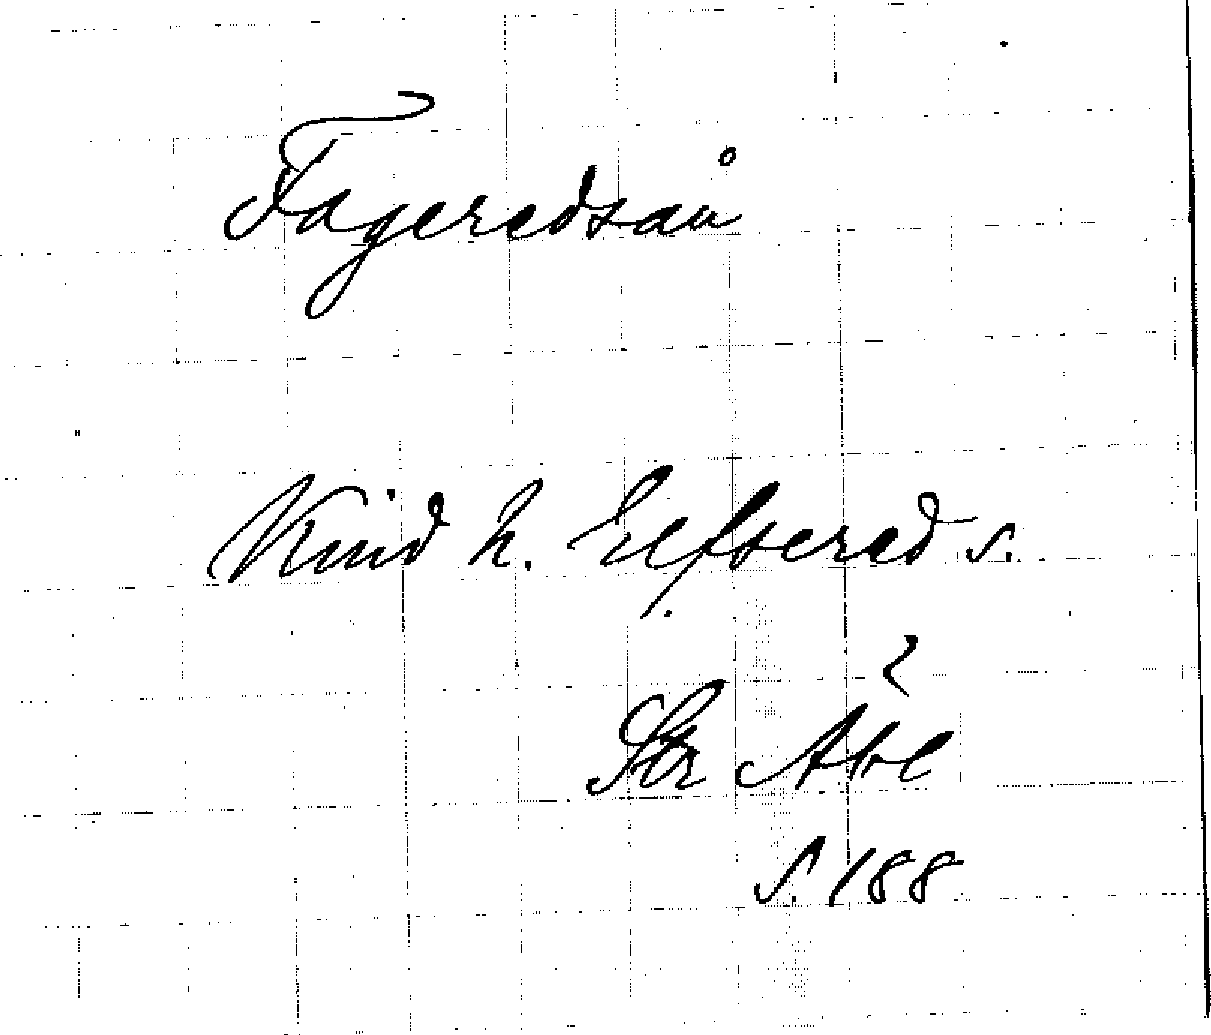 Fageredsån
Kind h. Elfsered s.
s. 188